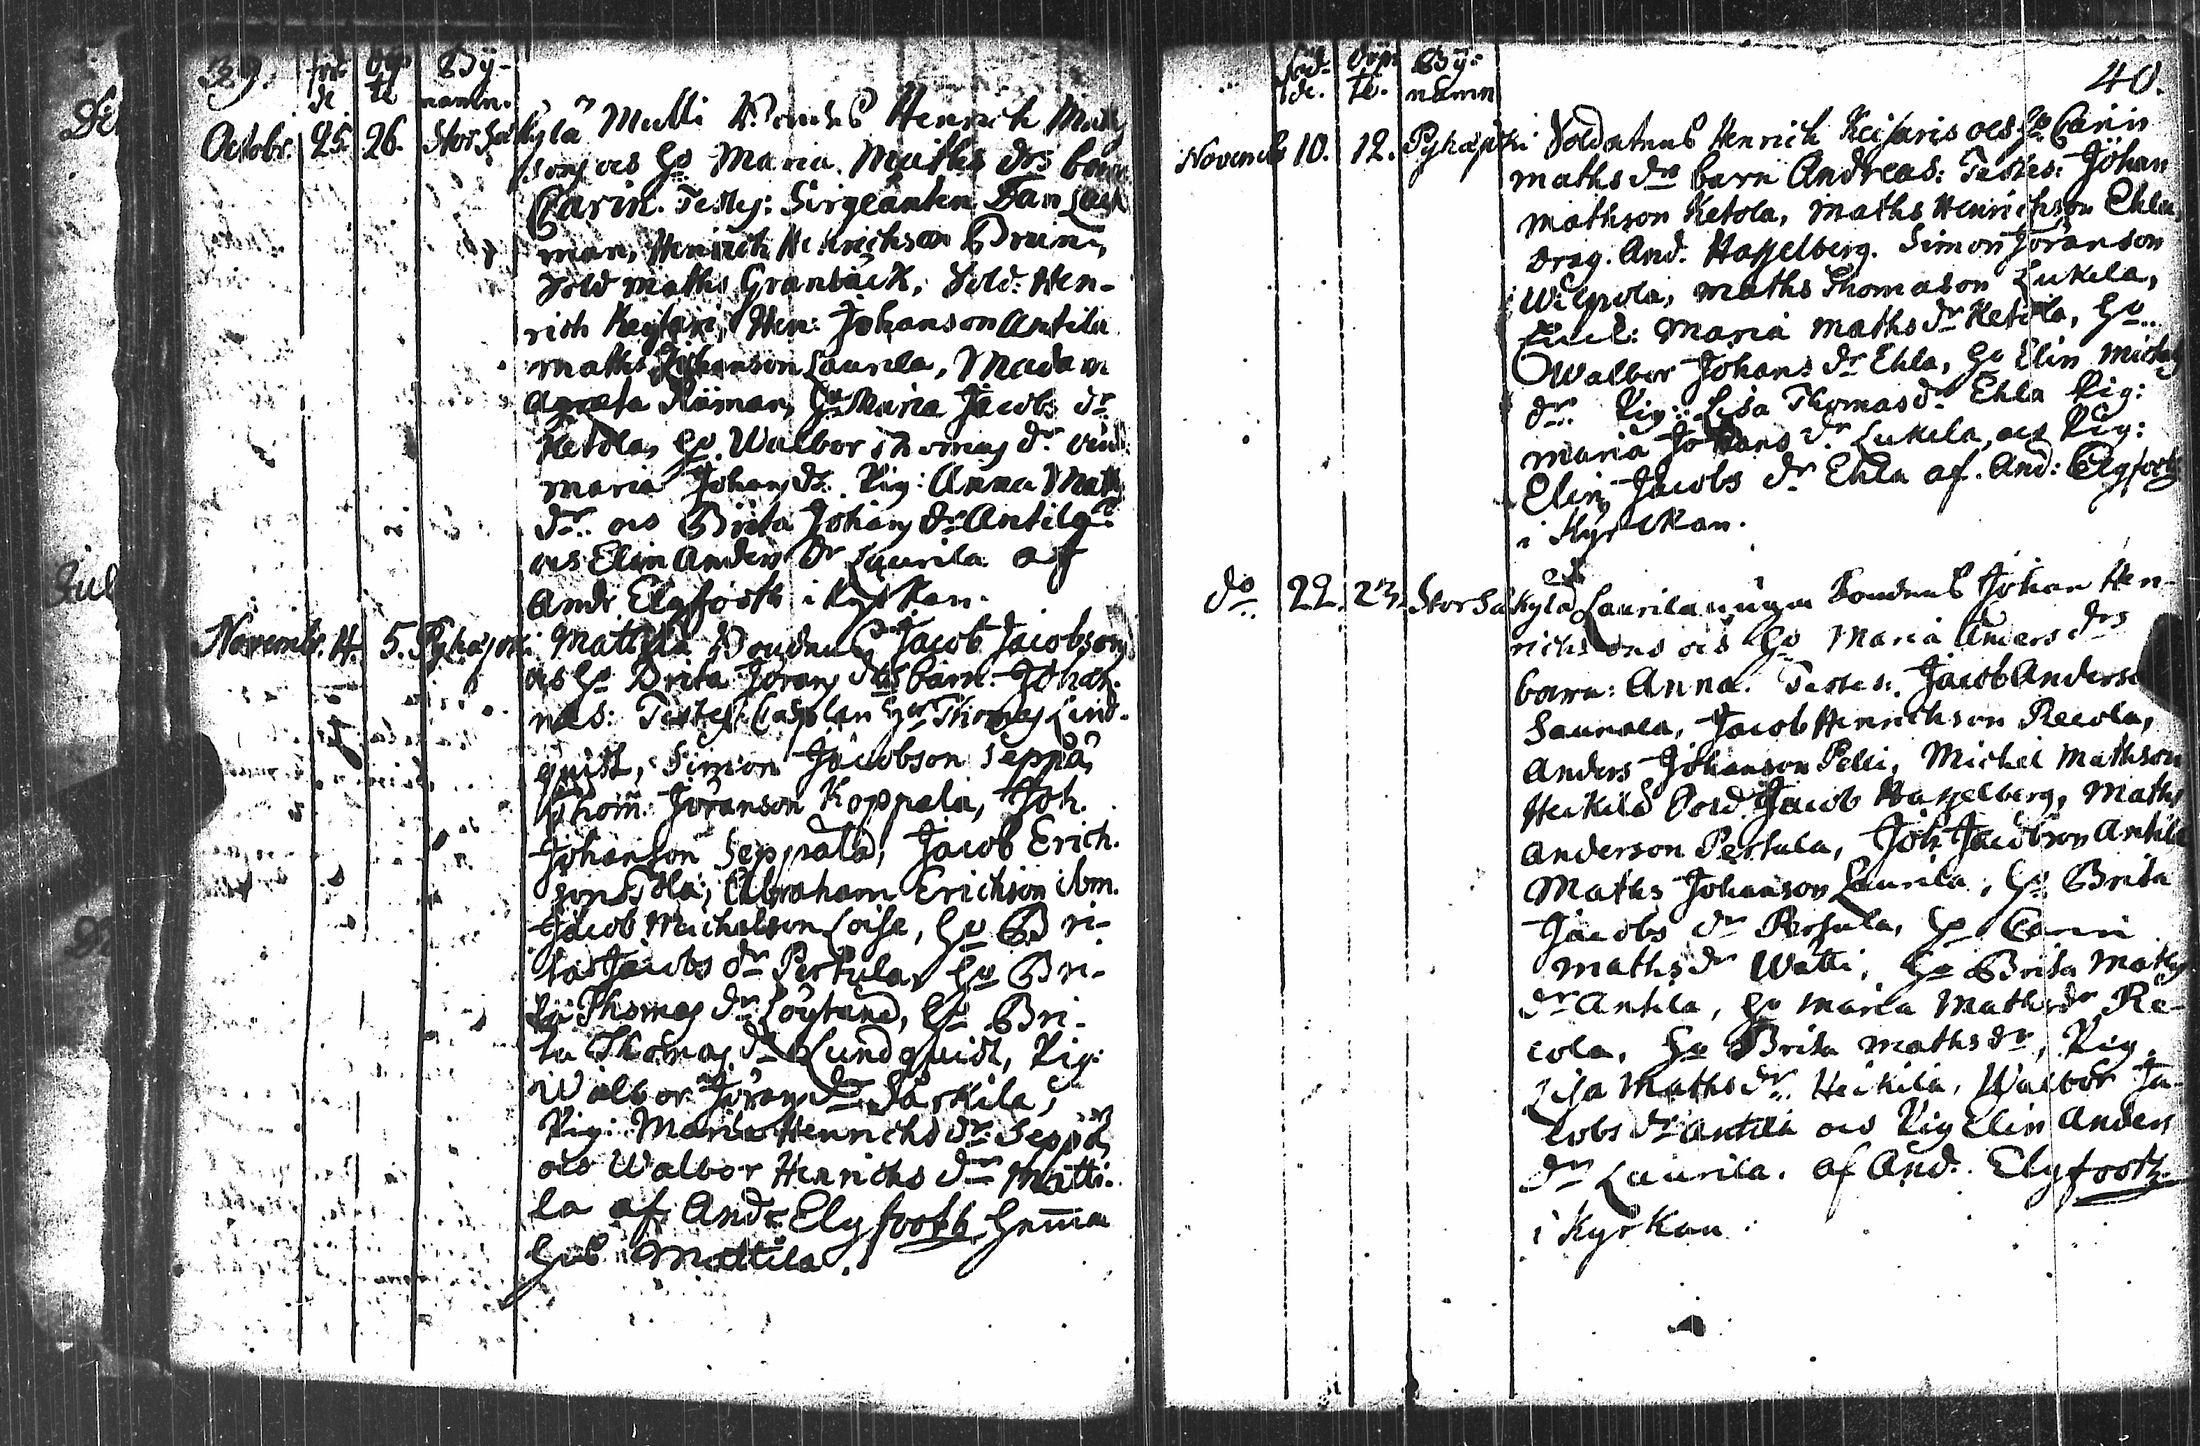 39. föd de döp te Bÿ- namn.
Octobr. 25. 26. Storsäkylä Mulli Bondes Henrich Maths
sons ocs Ho Maria Maths drs barn
Carin. Testes: Sirgeanten Dan
man, Henrich Henrichson Bruni,
Sold maths Granbäck, Sold: Hen-
rich Keysari, Hen: Johanson Antila
maths Johanson Laurila, Madam
Agneta, Ho Maria Jacobs dr
Ketola, Ho. Walbor Thomas dr
maria Johans dr. Pig: Anna Maths
dr. ocs Brita Johans dr Antila
ocs Elin Anders Dr Laurila af
Andr Elgfooth i Kyrkan.
Novemb. 4. 5. Pyhäjoki Mattila Bondens Jacob Jacobsons
ocs Ho Brita Jörans drs barn: Johan-
nes: Testes: Caplan Hr Thomas Lind-
quist, Simon Jacobson Seppä,
Thom: Jöranson Koppala, Joh.
Johanson Seppälä, Jacob Erich-
son, Abraham Erichson ibm.
Jacob Michelson Loise, Ho Bri-
ta Jacobs dr Pertula, Ho Bri-
ta Thomas dr Löytäne, Ho Bri-
ta Thomas dr Lundquist, Pig:
Walbor Jörans dr Särkilä,
Pig: Maria Henrichs dr Seppä,
ocs Walbor Henrichs dr Matti-
la af Andr Elgfooth Hemma
hos Mattila.
föd- de. döp- te. Bÿ- namn 40.
Novemb 10. 12. Pyhäjoki Soldatens Henrich Keisaris ocs Ho Carin
maths drs barn Andreas: Testes: Johan
mathson Ketola, maths Henrichson Ehla,
Drag. And. Hasselberg. Simon Jöranson
Wilpola, maths Thomason Lukila,
maria maths dr Ketola, Ho..
Walbor Johans dr Ehla, Ho Elin Michels
dr. Pig: Lisa Thomas dr Ehla Pig:
maria Johans dr Lukila, ocs Pig:
Elin Jacobs dr Ehla af. And: Elgfooth
i Kyrckan.
do 22. 23. Storsäkylä Laurila Bondens Johan Hen-
richsons ocs Ho Maria Anders drs
barn: Anna. Testes: Jacob Anderson
Saurala, Jacob Henrichson Recola,
Anders Johanson Pelli, Michel Mathson
Heikilä Sold. Jacob Hasselberg, Maths
Anderson Pertula, Joh Jacobson Antila
Maths Johanson Laurila, Ho Brita
Jacobs dr Pertula, Ho Carin
maths dr Watti, Ho Brita Maths
dr Antila, Ho maria Maths dr Re-
cola, Ho Brita maths dr, Pig.
Lisa Maths dr. Heikilä, Walbor Ja-
cobs dr Antila ocs Pig Elin Anders
dr Laurila. af And. Elgfooth.
i Kyrkan.